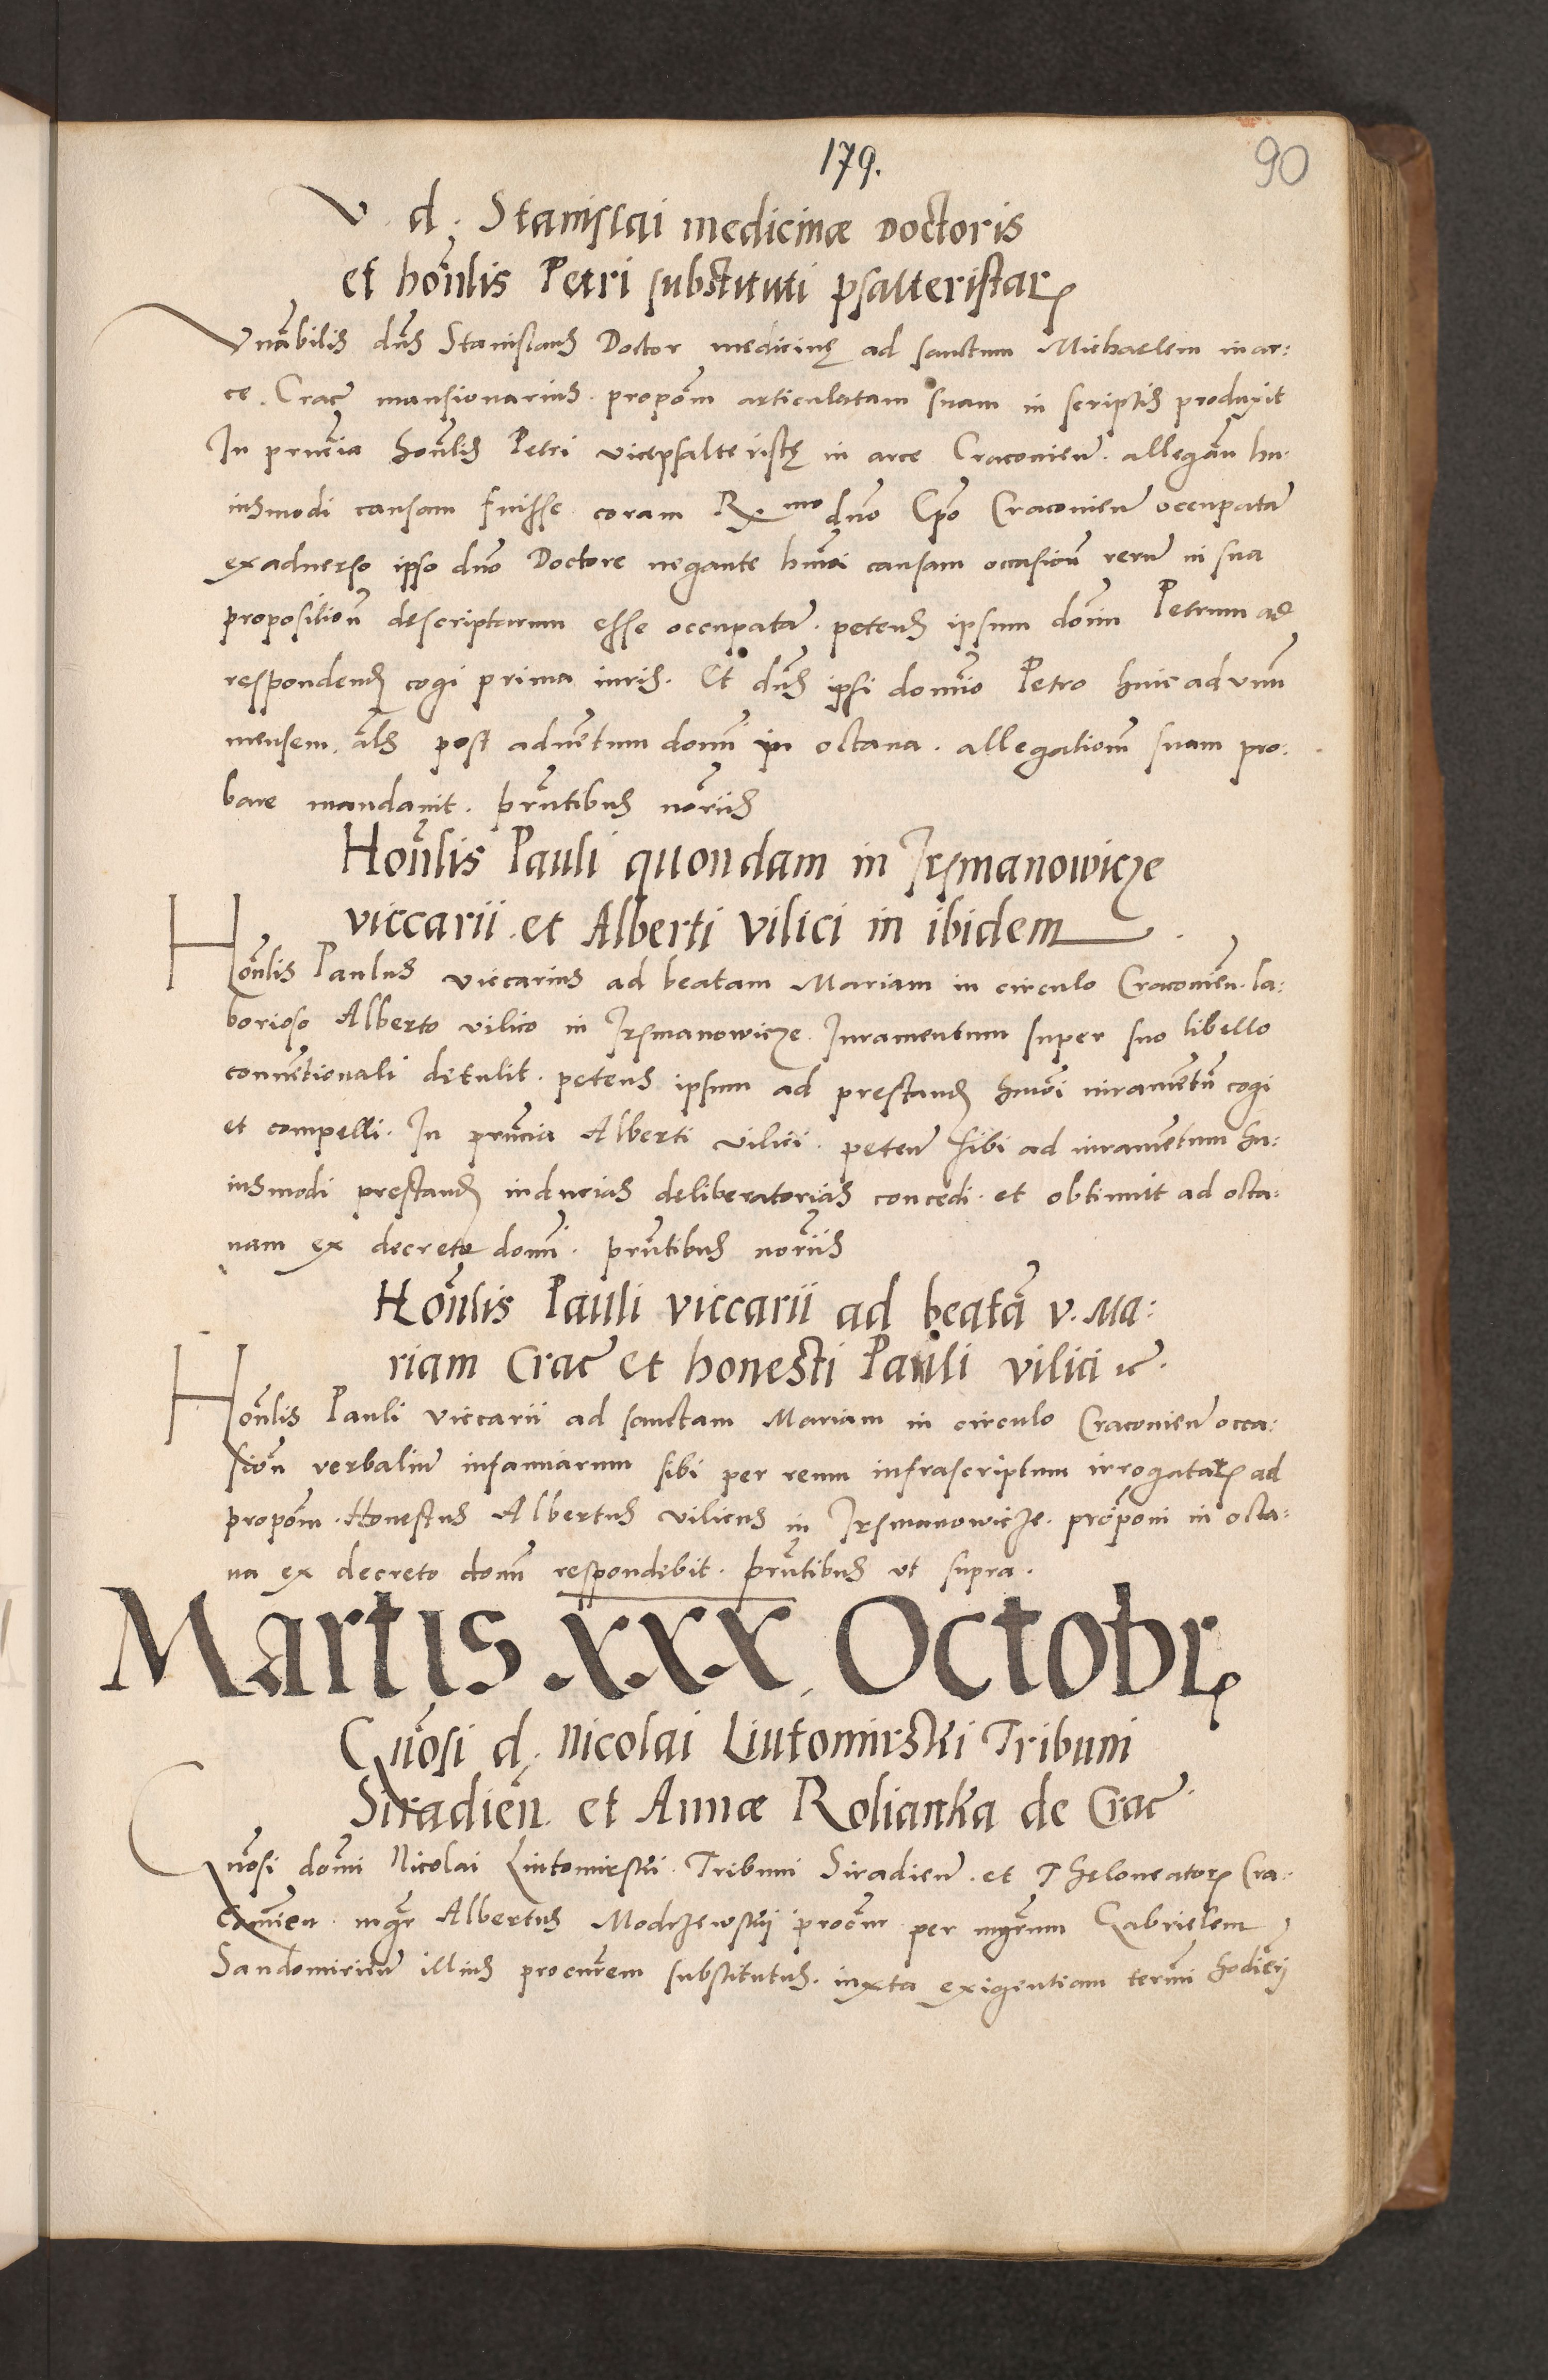 179.
90
V. d. Stanislai medicinæ Doctoris
et honlis Petri substituti psalteristarꝝ
Vnabilis dns Stanislaus Doctor medicinę ad sanctum Michaelem in ar:
ce. Crac mansionarius. propom articulatam suam in scriptis produxit
In pruncia honlis Petri vicepsalteristę in arce Cracovien. allegan hu:
iusmodi causam fuisse coram Rmo dno Epo Cracovien occupata
ex adverso ipso dno Doctore negante hmoi causam occasion rerum in sua
proposition descriptarum esse occupata. petens ipsum domi Petrum ad
respondend cogi prima iuris. Et dns ipsi domino Petro huic ad vnu
mensem, als post adventum domi in octava. allegationem suam pro:
bare mandavit. prntibus noriis
Honlis Pauli quondam in Irzmanowicze
viccarii et Alberti vilici in ibidem.
Honlis Paulus viccarius ad beatam Mariam in circulo Cracovien. la:
borioso Alberto vilico in Irzmanowicze Iuramentum super suo libello
conventionali detulit. petens ipsum ad prestand hmoi iuramentu cogi
et compelli. In pruncia Alberti vilici. peten sibi ad iuramentum hu:
iusmodi prestand inducias deliberatorias concedi. et obtinuit ad octa:
vam ex decreto domi. prntibus noriis
Honlis Pauli viccarii ad beata v. Ma:
riam Crac et honesti Pauli vilici ic.
Honlis Pauli viccarii ad sanctam Mariam in circulo Cracovien occa:
sion verbalium infamiarum sibi per reum infrascriptum irrogatarꝝ ad
propom. Honestus Albertus vilicus in Irzmanowicze. proponi in octa:
va ex decreto domi respondebit. prntibus vt supra.
Martis. xxx. Octobrꝝ
Gnosi d. Nicolai Liutomirskii Tribuni
Siradien. et Annæ Rolianka de Crac.
Gnosi domi Nicolai Liutomirskii. Tribuni Siradien. et Theloneatorꝝ Cra:
covien. mgr Albertus Modrzewskii procur per mgrum Gabrielem
Sandomirien illius procurem substitutus. iuxta exigentiam termi hodierni